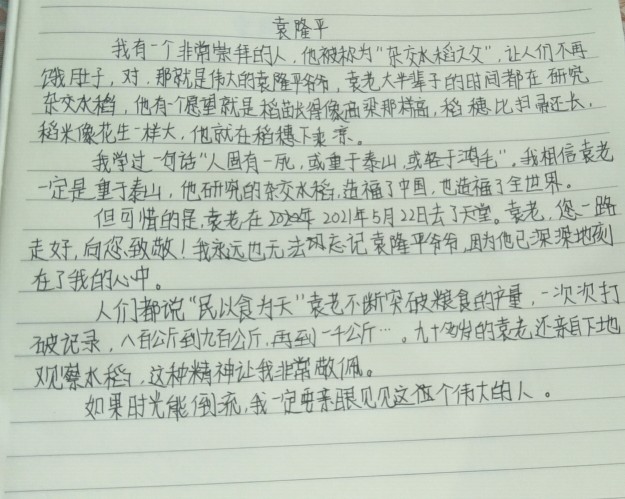 袁隆平
我有一个非常崇拜的人，他被称为“杂交水稻之父”，让人们不再
饿肚子，对，那就是伟大的袁隆平爷爷，袁老大半辈子的时间都在研究
杂交水稻，他有个愿望就是稻苗长得像高粱那样高，稻穗比扫帚还长，
稻米像花生一样大，他就在稻穗下乘凉。
我学过一句话“人固有一死，或重于泰山，或轻于鸿毛”，我相信袁老
一定是重于泰山，他研究的杂交水稻，造福了中国，也造福了全世界。
但可惜的是，袁老在2021年5月22日去了天堂。袁老，您一路
走好，向您致敬！我永远也无法忘记袁隆平爷爷，因为他已深深地刻
在了我的心中。
人们都说“民以食为天”袁老不断突破粮食的产量，一次次打
破记录，八百公斤到九百公斤，再到一千公斤…。九十多岁的袁老还亲自下地
观察水稻，这种精神让我非常敬佩。
如果时光能倒流，我一定要亲眼见见这位个伟大的人。